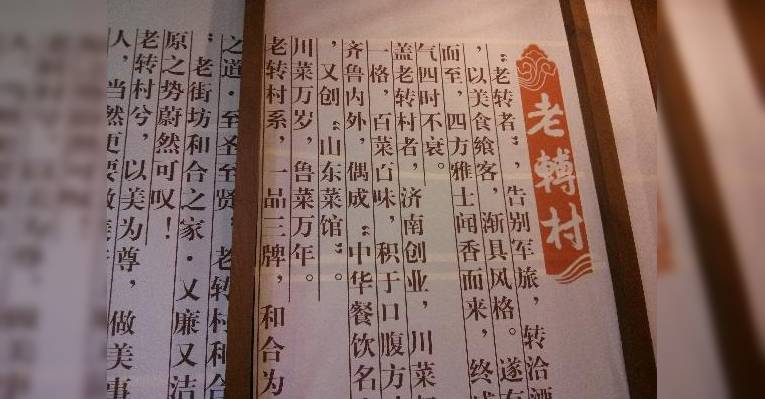 老轉村
“老转者”，告别军旅，转洽酒
，以美食飨客，渐具风格。遂有
而至，四方雅士闻香而来，终成
气四时不衰。
盖老转村者，济南创业，川菜
一格，百菜百味，积于口腹方
齐鲁内外，偶成“中华餐饮名
，又创“山东菜馆”。
川菜万岁，鲁菜万年。
老转村系，一品三牌，和合为
之道·至圣至贤，老转村和合
“老街坊和合之家·又廉又洁
原之势蔚然可叹！
老转村兮，以美为尊，做美事
人，当然更要做美